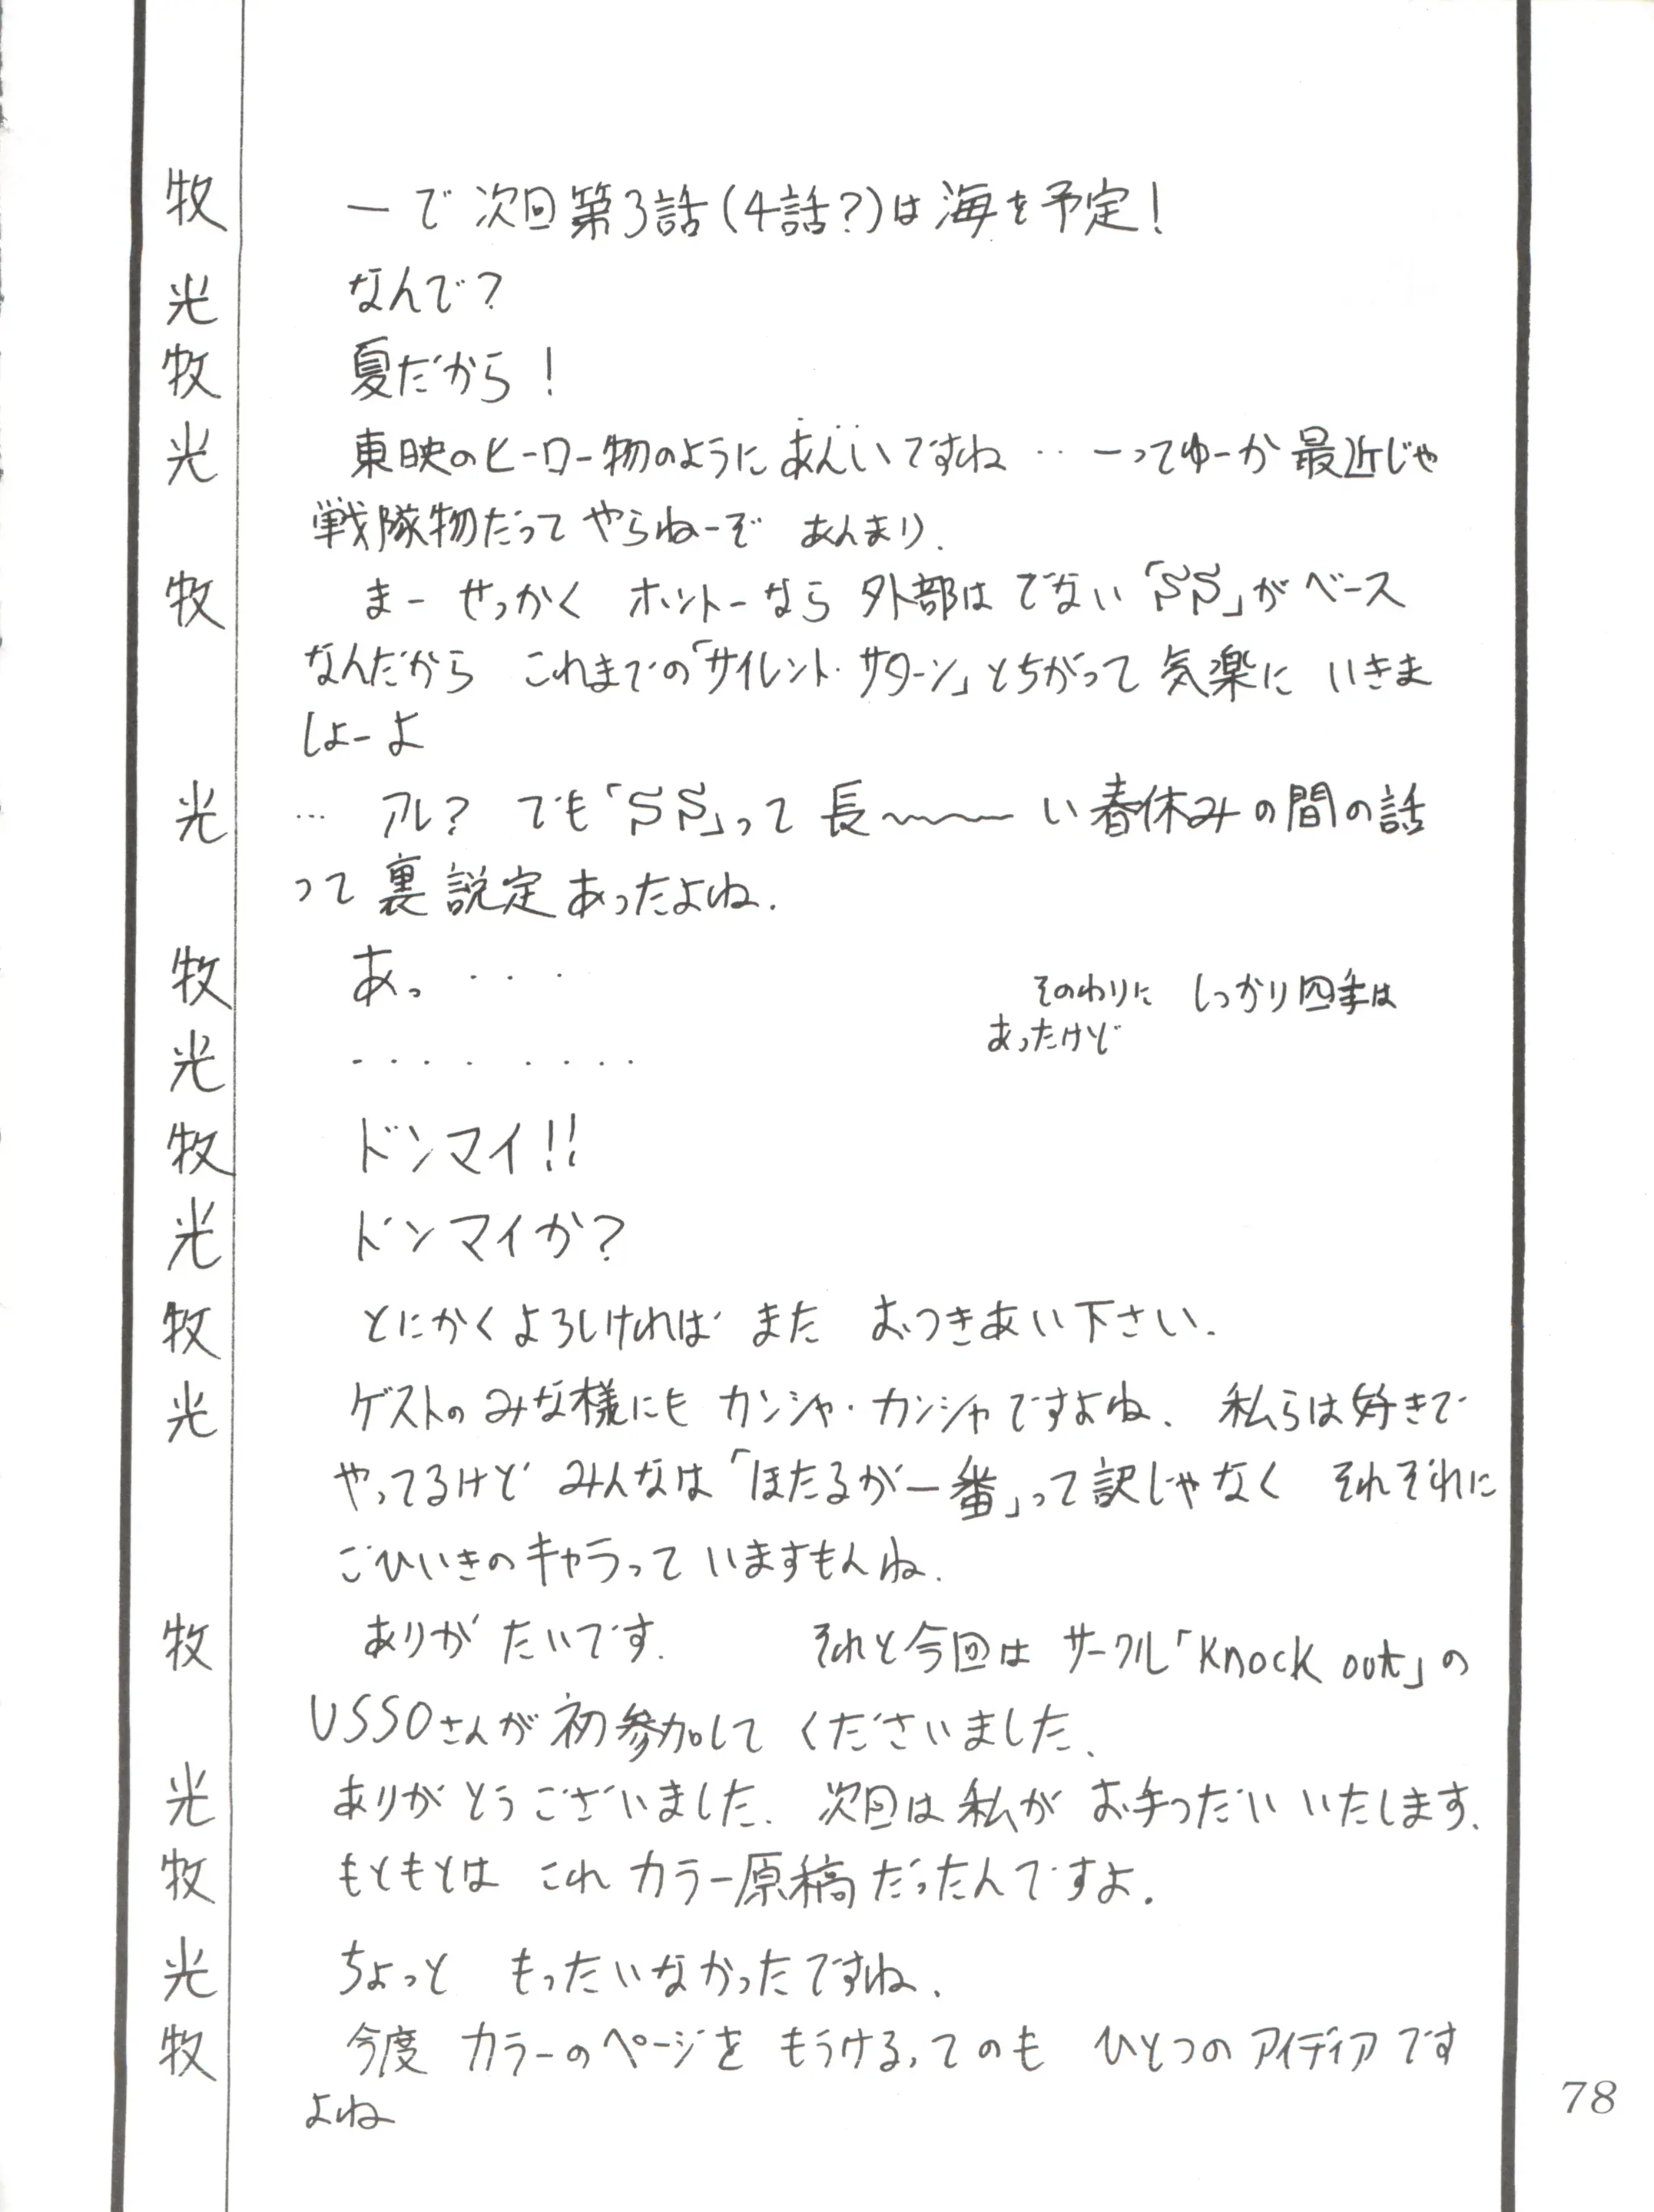 牧 ーで 次回第3話(4話?)は 海を予定!
光 なんで?
牧 夏だから!
光 東映のヒーロー物のように あんいですね‥ーってゆーか 最近じゃ
戦隊物だって やらねーぞ あんまり.
牧 まー せっかく ホントーなら 外部は でない「SS」が ベース
なんだから これまでの「サイレント・サターン」とちがって 気楽に いきま
しょーよ
光 … アレ? でも「SS」って 長〜〜〜い 春休みの間の話
って 裏設定 あったよね.
牧 あっ・・・
そのわりに しっかり四季は
あったけど
光 ・・・・・・・・
牧 ドンマイ!!
光 ドンマイか?
牧 とにかくよろしければ また おつきあい下さい.
光 ゲストの みな様にも カンシャ・カンシャですよね、 私らは好きで
やってるけど みんなは「ほたるが一番」って訳じゃなく それぞれに
ごひいきの キャラって いますもんね.
牧 ありがたいです. それと今回は サークル「Knock out」の
USSOさんが 初参加して くださいました、
光 ありがとうございました. 次回は 私が お手つだい いたします.
牧 もともとは これ カラー原稿だったんですよ.
光 ちょっと もったいなかったですね.
牧 今度 カラーのページを もうけるってのも ひとつの アイディアです
よね
78